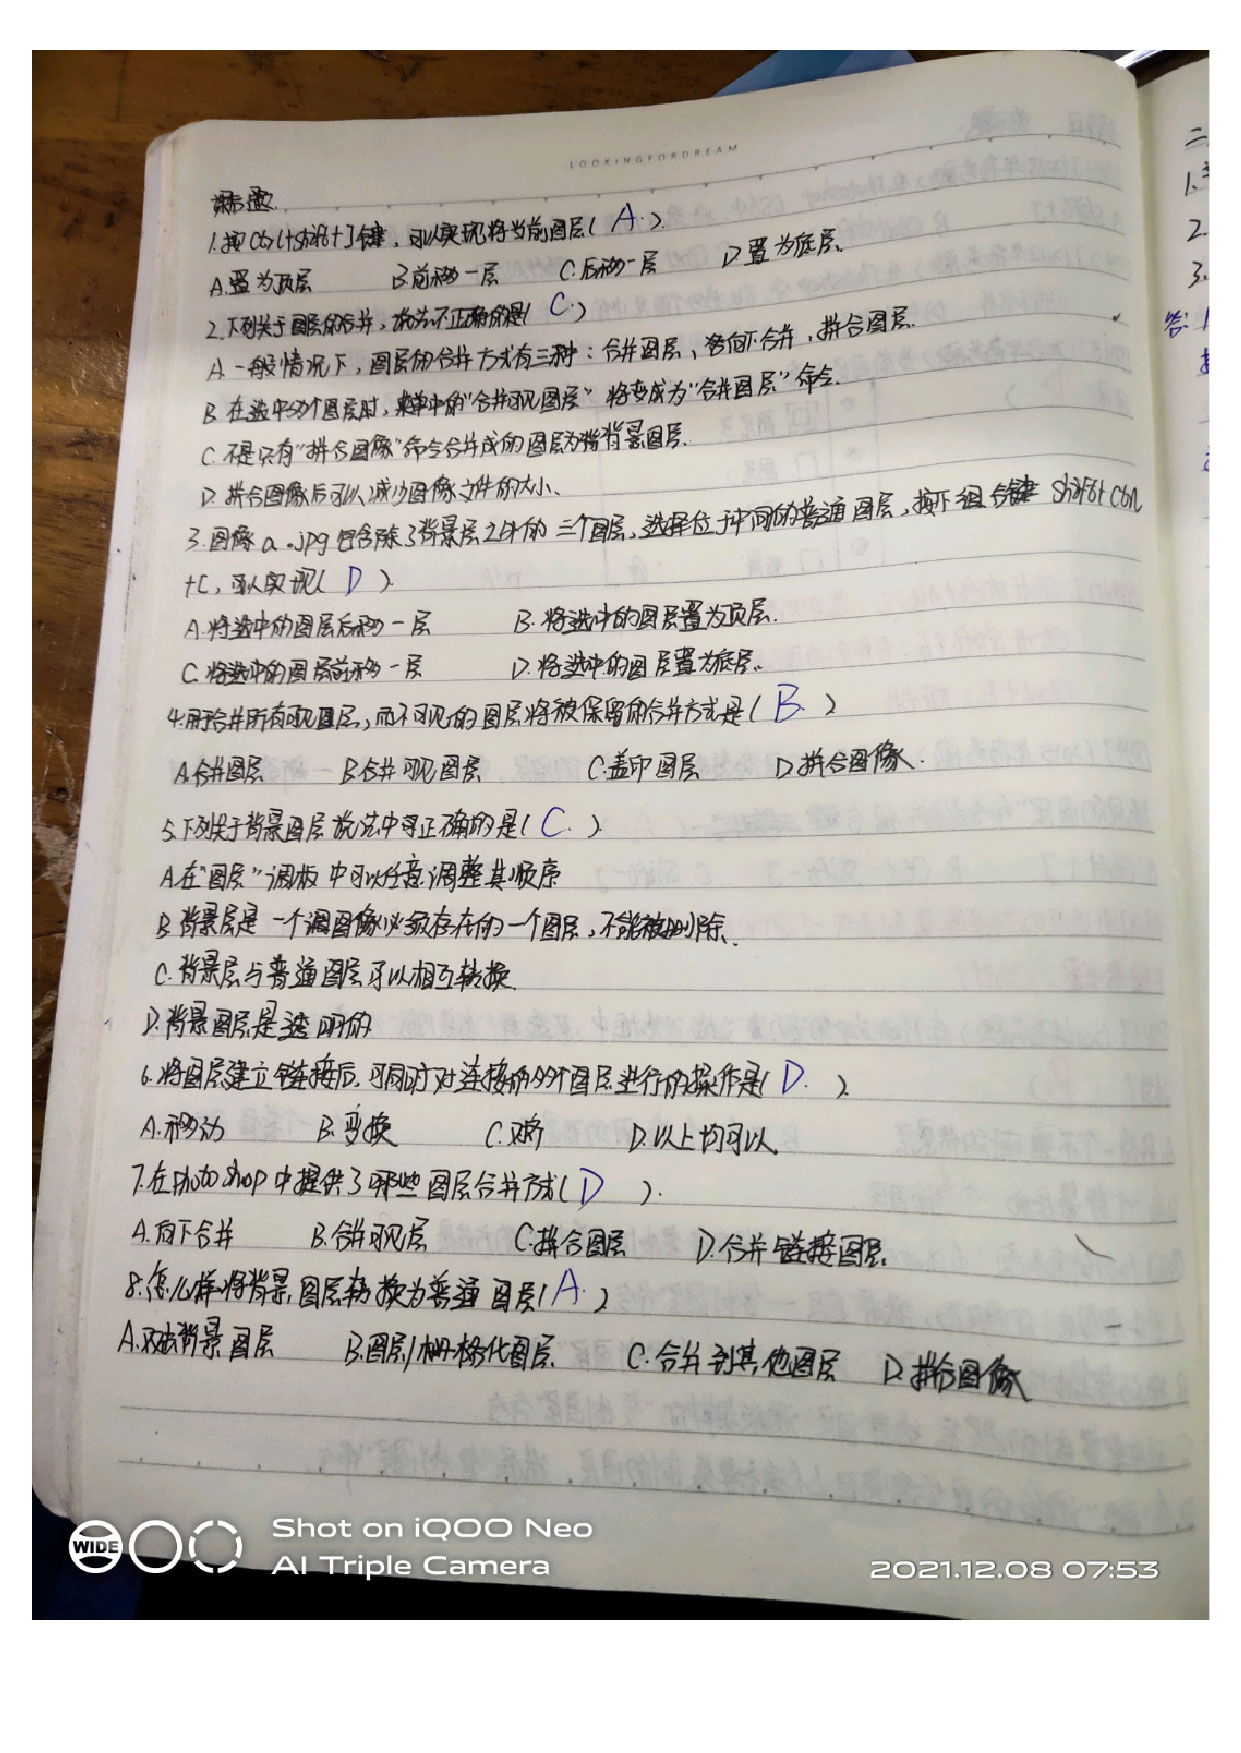 LOOKINGFORDREAM
课后题.
1.按Ctrl+shift+]键,可以实现将当前图层( A. ).
A.置为顶层 B前移一层 C.后移一层 D置为底层.
2.下列关于图层的合并,说法不正确的是( C. )
A.一般情况下,图层的合并方式有三种:合并图层、向下合并、拼合图层.
B.在选中多个图层时,菜单中的"合并可见图层"将变成为"合并图层"命令.
C.不是只有"拼合图像"命令合并成的图层为背景图层.
D.拼合图像后可以减少图像文件的大小、
3.图像a.jpg包含除了背景层之外的三个图层,选择位于中间的普通图层,按下组合键
+[,可以实现( D ).
A.将选中的图层后移一层 B.将选中的图层置为顶层.
C.将选中的图层前移一层 D.将选中的图层置为底层.
4.用于合并所有可见图层,而不可见的图层将被保留的合并方式是( B. )
A.合并图层 B合并可见图层 C.盖印图层 D.拼合图像.
5.下列关于背景图层说法中正确的是( C. ).
A.在"图层"调板中可以任意调整其顺序
B.背景层是一个图像必须存在的一个图层,不能被删除.
C.背景层与普通图层可以相互转换.
D.背景图层是透明的
6.将图层建立链接后,可同时对连接的多个图层进行的操作是( D. ).
A.移动 B.变换 C.对齐 D.以上均可以.
7.在photoshop中提供了哪些图层合并方式( D ).
A.向下合并 B.合并可见层 C.拼合图层 D.合并链接图层.
8.怎么样将背景图层转换为普通图层( A. )
A.双击背景图层 B.图层/栅格化图层 C.合并到其他图层 D.拼合图像
二
1.
2.
3.
答:
WIDE
Shot on iQOO Neo
AI Triple Camera
2021.12.08 07:53